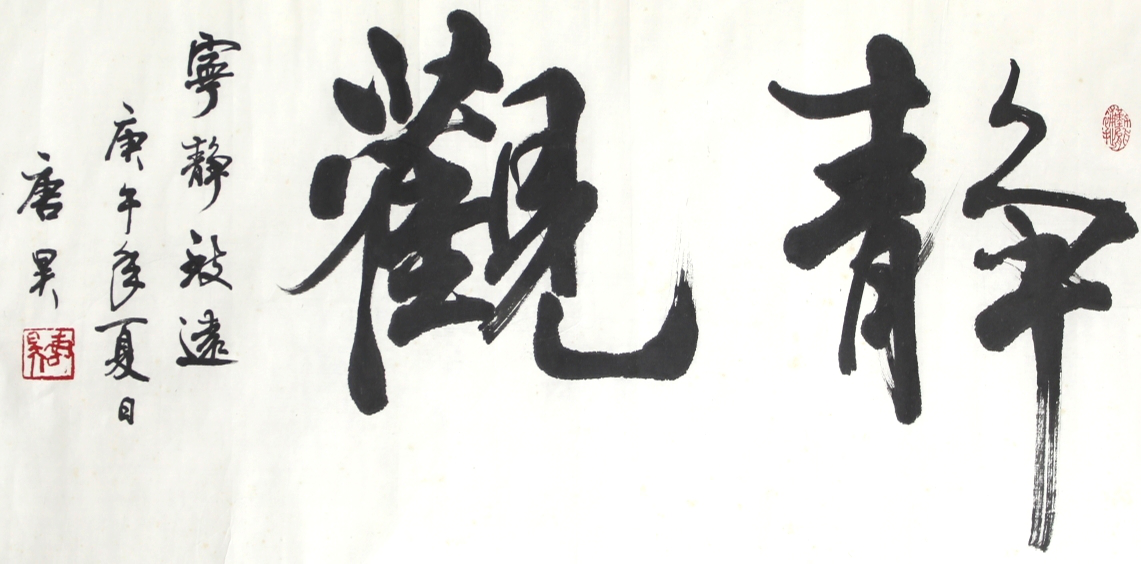 静觀
寧静致遠
庚午年夏日
唐昊